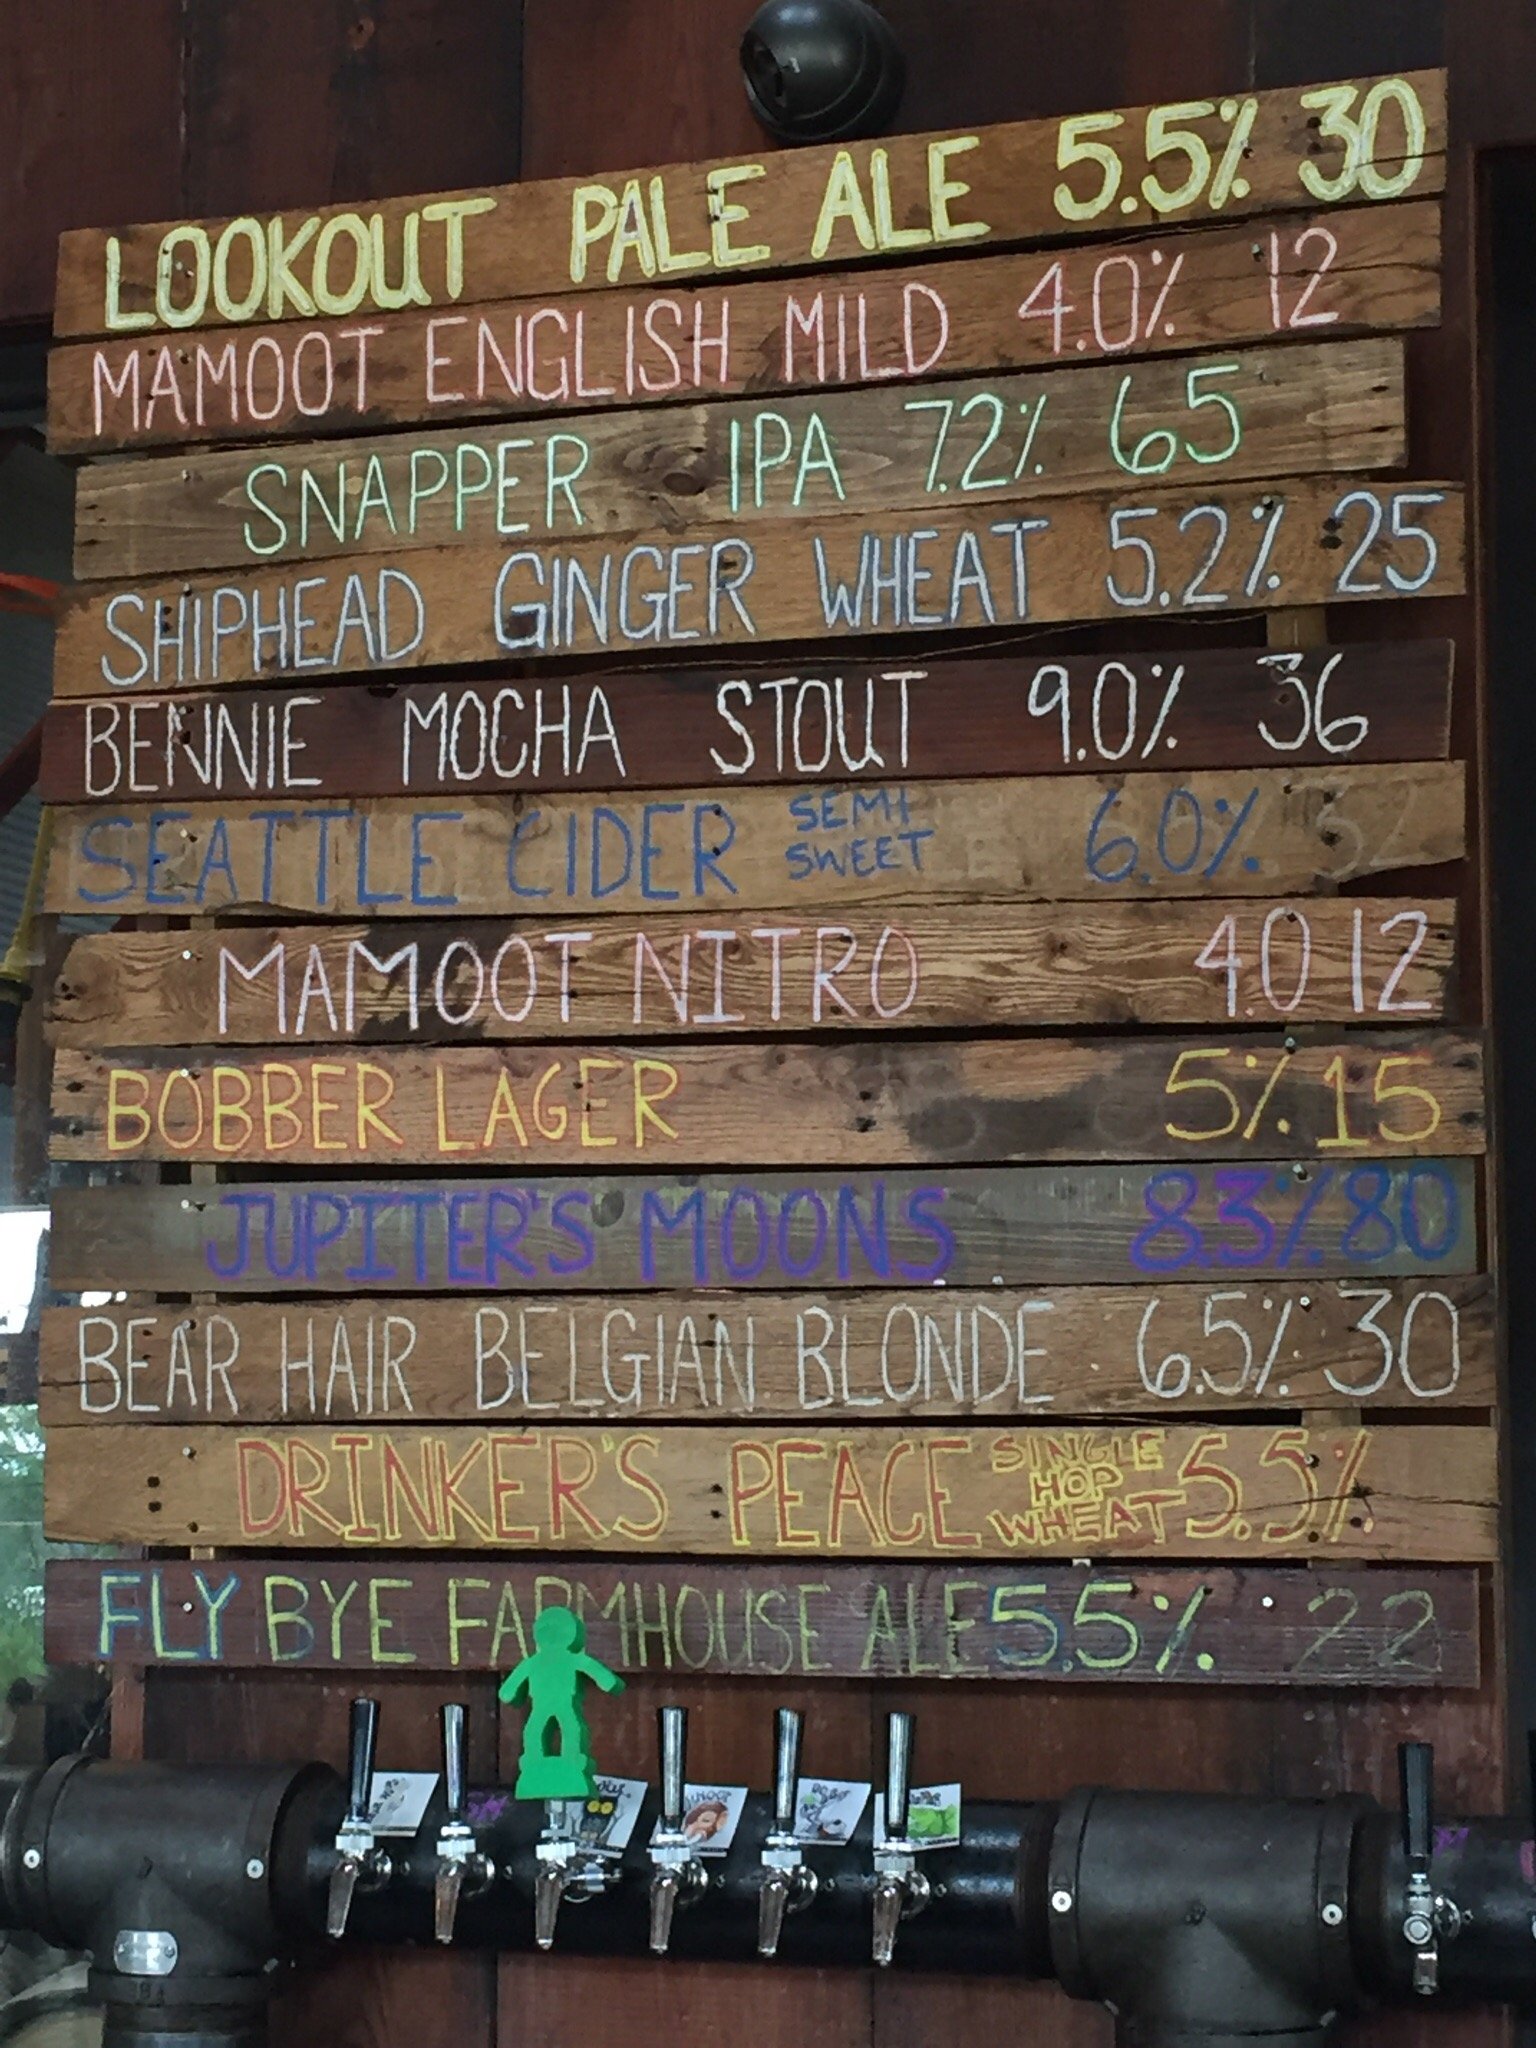 LOOKOUT PALE ALE 5.5% 30
MAMOOT ENGLISH MILD 4.0% 12
SNAPPER IPA 7.2% 65
SHIPHEAD GINGER WHEAT 5.2% 25
BENNIE MOCHA STOUT 9.0% 36
SEATTLE CIDER SEMI SWEET 6.0% 32
MAMOOT NITRO 4.0 12
BOBBER LAGER 5% 15
JUPITER'S MOONS 8.3% 80
BEAR HAIR BELGIAN BLONDE 6.5% 30
DRINKER'S PEACE SINGLE HOP WHEAT 5.5%
FLY BYE FARMHOUSE ALE 5.5% 22